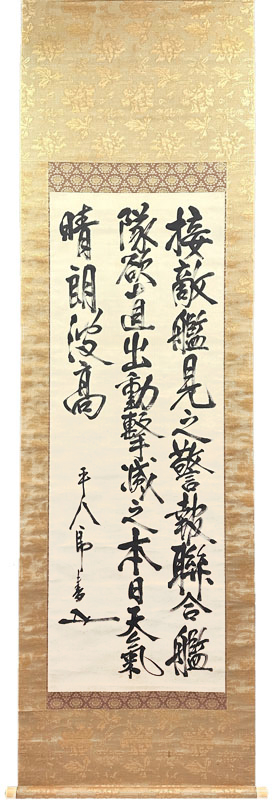 接敵艦見之警報聯合艦
隊欲直出動撃滅之本日天氣
晴朗波高
平八郎書